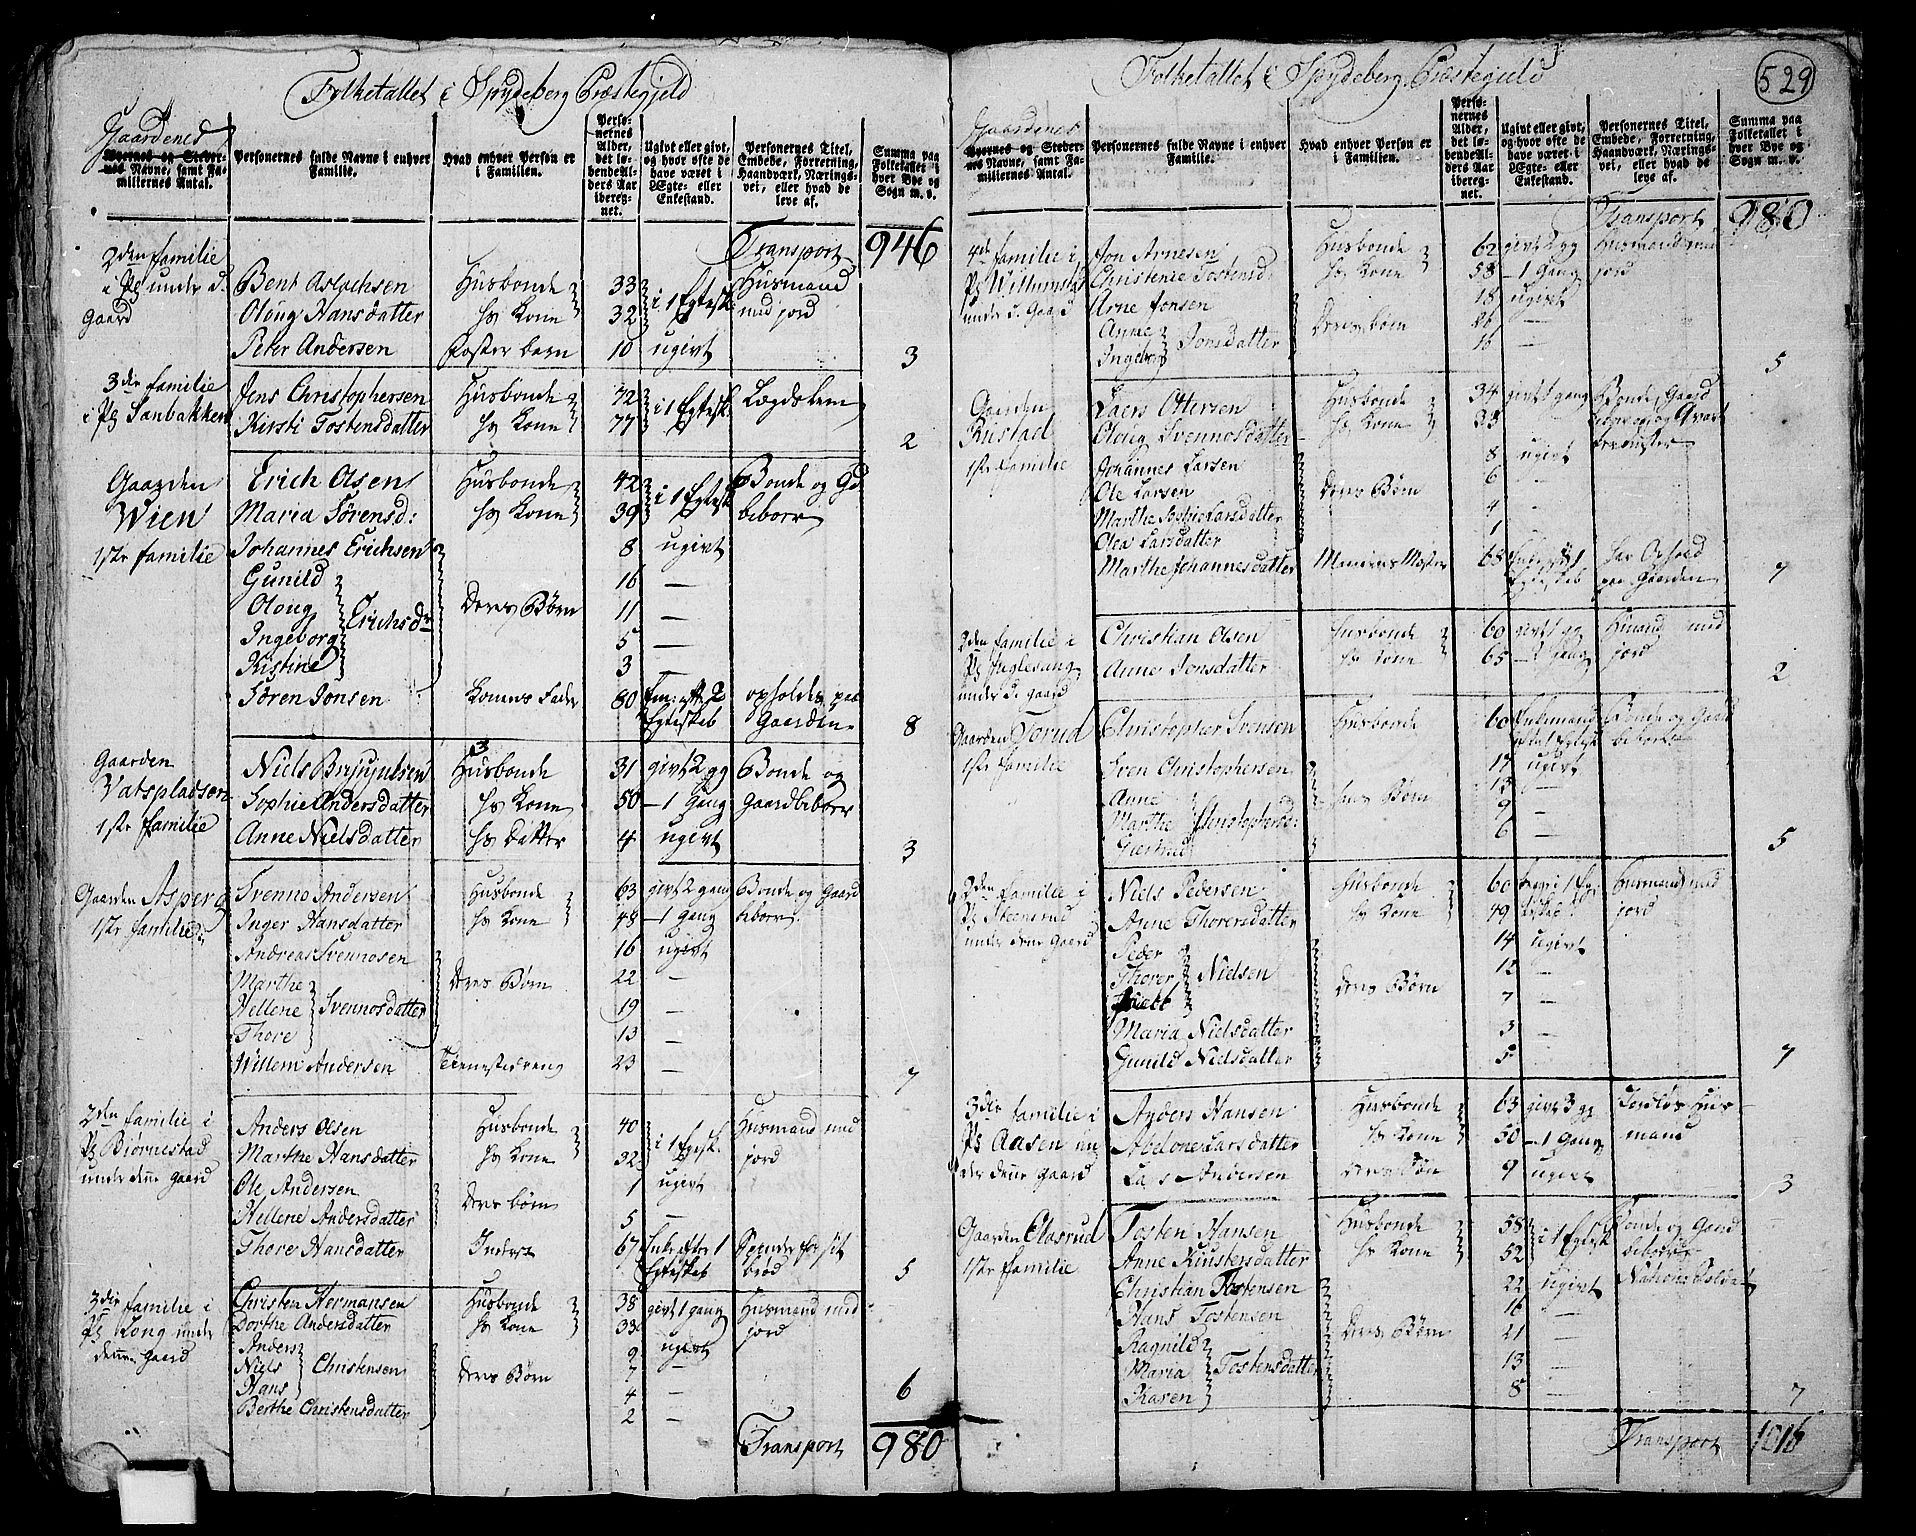 529
Folketallet i Spydeberg Præstegield
Gaardenes
Byernes og Stedernes Navne, samt Familiernes Antal.
Personernes fulde Navne i enhver Familie.
Hvad enhver Person er i Familien.
Personernes Alder, det løbende Alders Aar iberegnet.
Ugivt eller givt, og hvor ofte de have været i Ægte- eller Enkestand.
Personernes Titel, Embede, Forretning, Haandværk, Næringsvei, eller hvad de leve af.
Summa paa Folketallet i hver Bye og Sogn m. v.
Transport 946
2den familie i Pl under d. Gaard
Bent Aslachsen Husbonde 33 i 1 Egtesk. Husmand med jord
Oloug Hansdatter hs Kone 32
Peter Andersen Foster barn 10 ugivt 3
3die familie i Pl Sanbakken
Jens Christophersen Husbonde 72 i 1 Egtesk. Lægdslem
Kirsti Tostensdatter hs Kone 77 2
Gaarden Wien 1ste familie
Erich Olsen Husbonde 42 i 1 Egtesk. Bonde og Gd beboer
Maria Sørensd: hs Kone 39
Johannes Erichsen 8 ugivt
Gunild 16 —
Oloug Erichsdr Deres Børn 11 —
Ingeborg 5 —
Kistine 3 —
Søren Jonsen Konens Fader 80 2 Egteskab opholdes paa Gaarden 8
Gaarden Vatspladsen 1ste familie
Niels Husbonde 31 givt 2 gg Bonde og Gaardbeboer
Sophie Andersdatter hs Kone 50 — 1 Gang
Anne Nielsdatter hs Datter 4 ugivt 3
Gaarden Asperg 1ste familie
Svenno Andersen Husbonde 63 givt 2 gang Bonde og Gaard beboer
Inger Hansdatter hs Kone 48 — 1 Gang
Andreas Svennosen 16 ugivt
Marthe Deres Børn 22 —
Hellene Svennosdatter 19 —
Thore 13 —
Willem Andersen Tienestedreng 23 — 7
2den familie i Pl Biørnestad under denne Gaard
Anders Olsen Husbonde 40 i 1 Egtesk. Husmand med jord
Marthe Hansdatter hs Kone 32
Ole Andersen Deres børn 1 ugivt
Hellene Andersdatter 5 —
Thore Hansdatter Inderst 67 Enke efter 1 Egteskab Spinder for sit brød 5
3die familie i Pl Long under denne Gaard
Christen Hermansen Husbonde 38 givt 1 gang Husmand med jord
Dorthe Andersdatter hs Kone 33
Anders 9 ugivt
Niels Christensen Deres Børn 7 —
Hans 4 —
Berthe Christensdatter 2 — 6
Transport 980
Folketallet i Spydeberg Præstegield
Gaardenes
Byernes og Stedernes Navne, samt Familiernes Antal.
Personernes fulde Navne i enhver Familie.
Hvad enhver Person er i Familien.
Personernes Alder, det løbende Alders Aar iberegnet.
Ugivt eller givt, og hvor ofte de have været i Ægte- eller Enkestand.
Personernes Titel, Embede, Forretning, Haandværk, Næringsvei, eller hvad de leve af.
Summa paa Folketallet i hver Bye og Sogn m. v.
Transport 980
4de familie i Pl under d. Gaard
Jon Arnesen Husbonde 62 givt 2 gg Husmand med jord
Christense Tostensd. hs Kone 58 — 1 Gang
Arne Jonsen 18 ugivt
Anne Jonsdatter Deres børn 26 —
Ingeborg 16 — 5
Gaarden Rustad 1ste familie
Laers Ottersen Husbonde 34 givt 1 gang Bonde, Gaard beboer og
Oloug Svennosdatter hs Kone 33
Johannes Larsen 8 ugivt
Ole Larsen Deres Børn 6 -
Marthe Sophie Larsdatter 4 -
Olea Larsdatter 1 -
Marthe Johannesdatter Mandens Moder 68 1 Egteskab har Ophold paa Gaarden 7
2den familie i Pl under d. Gaard
Christian Olsen Husbonde 60 givt 1 gg Husmand med jord
Anne Jonsdatter hs Kone 65 — 2 Gang 2
Gaarden 1ste familie
Christopher Svensen Husbonde 60 Enkemand Bonde og Gaard beboer
Sven Christophersen 17 ugivt
Anne hans Børn 13 —
Marthe Christophersd: 9 —
6 — 5
2den familie i Pl Steensrud under denne Gaard
Niels Pedersen Husbonde 60 Husmand med jord
Anne Thorersdatter hs Kone 49
Peder 14 ugivt
Thorer Nielsen Deres Børn 12 —
7 —
Maria Nielsdatter 3 —
Gunild Nielsdatter 5 — 7
3die familie i Pl Aasen under denne Gaard
Anders Hansen Husbonde 63 givt 3 gg Jordløs Husmand
Abelone Larsdatter hs Kone 50 — 1 Gang
Andersen deres Søn 9 ugivt 3
Gaarden Elasrud 1ste familie
Tosten Hansen Husbonde 58 i 1 Egtesk Bonde og Gaard beboer
Anne hs Kone 52
Christian Tostensen 22 ugivt National Soldat
Hans Tostensen 16 —
Ragnild Deres Børn 21 —
Maria Tostensdatter 13 —
Karen 8 — 7
Transport 1016